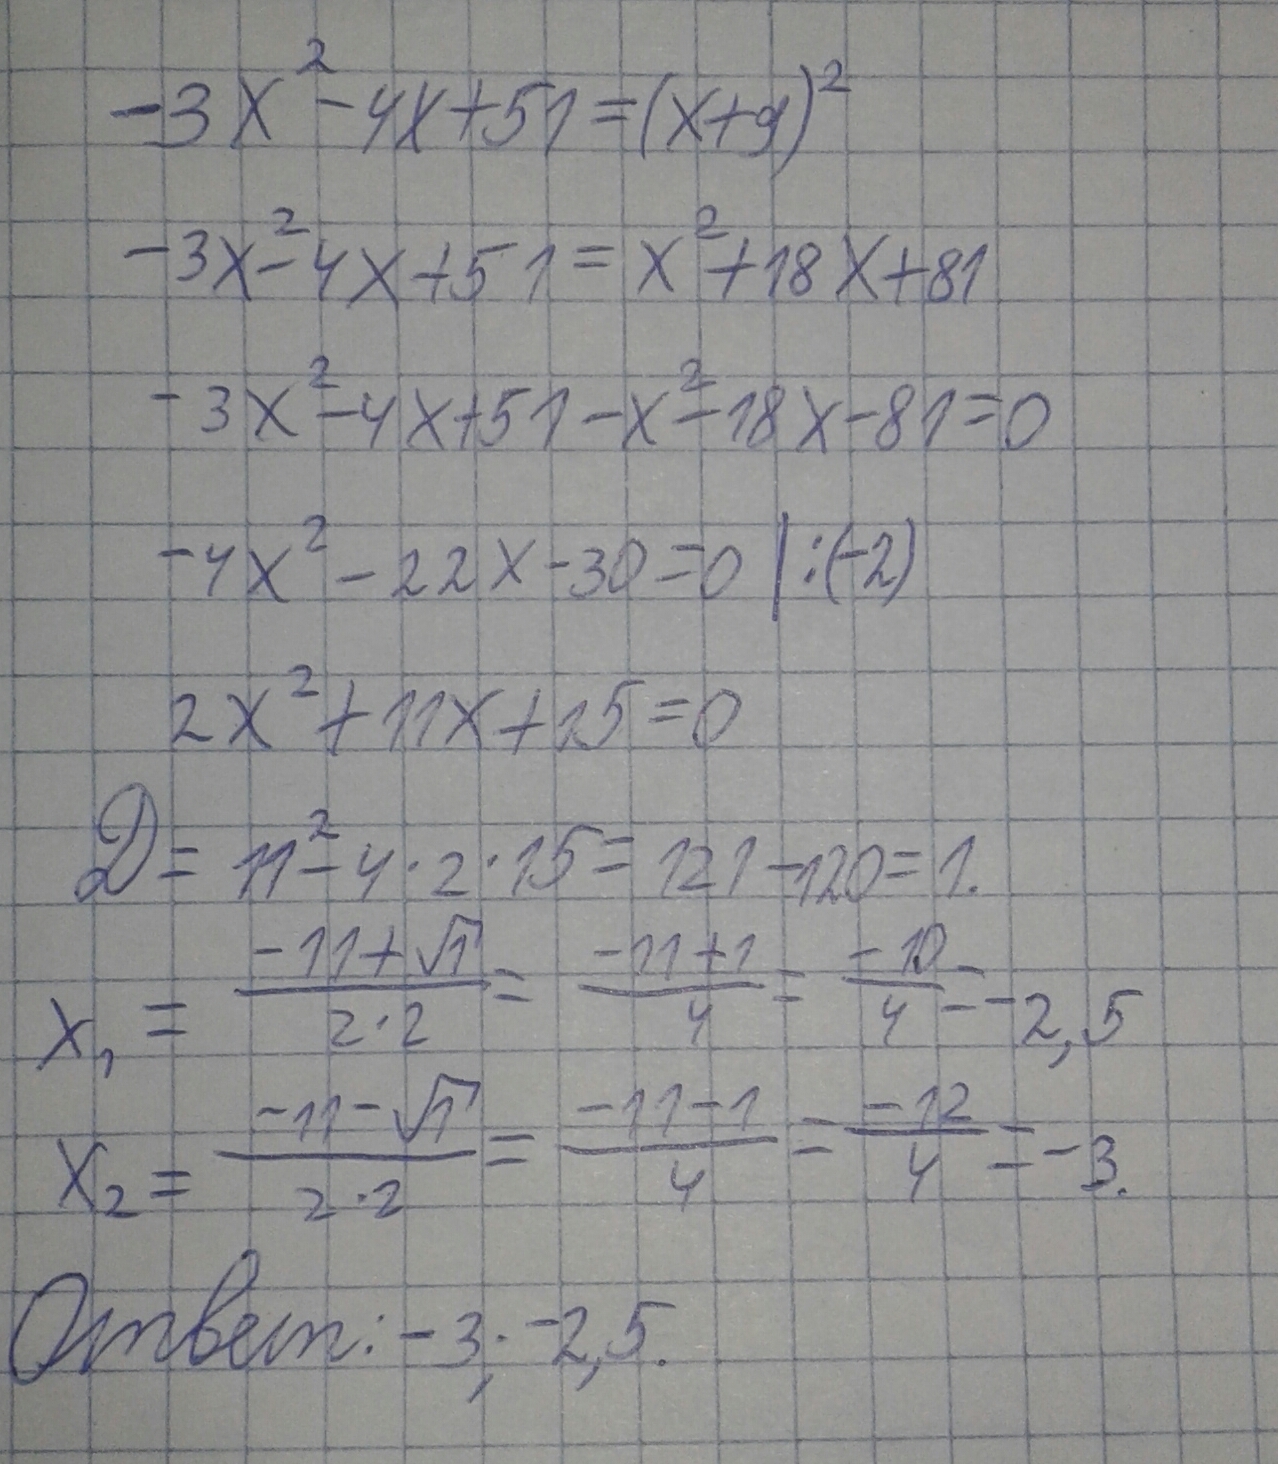 -3x²-4x+51=(x+9)²
-3x²-4x+51=x²+18x+81
-3x²-4x+51-x²-18x-81=0
-4x²-22x-30=0 |:(-2)
2x²+11x+15=0
D=11²-4·2·15=121-120=1.
x₁ = (-11+√1)/(2·2) = (-11+1)/4 = (-10)/4 = -2,5
x₂ = (-11-√1)/(2·2) = (-11-1)/4 = (-12)/4 = -3.
Ответ: -3; -2,5.